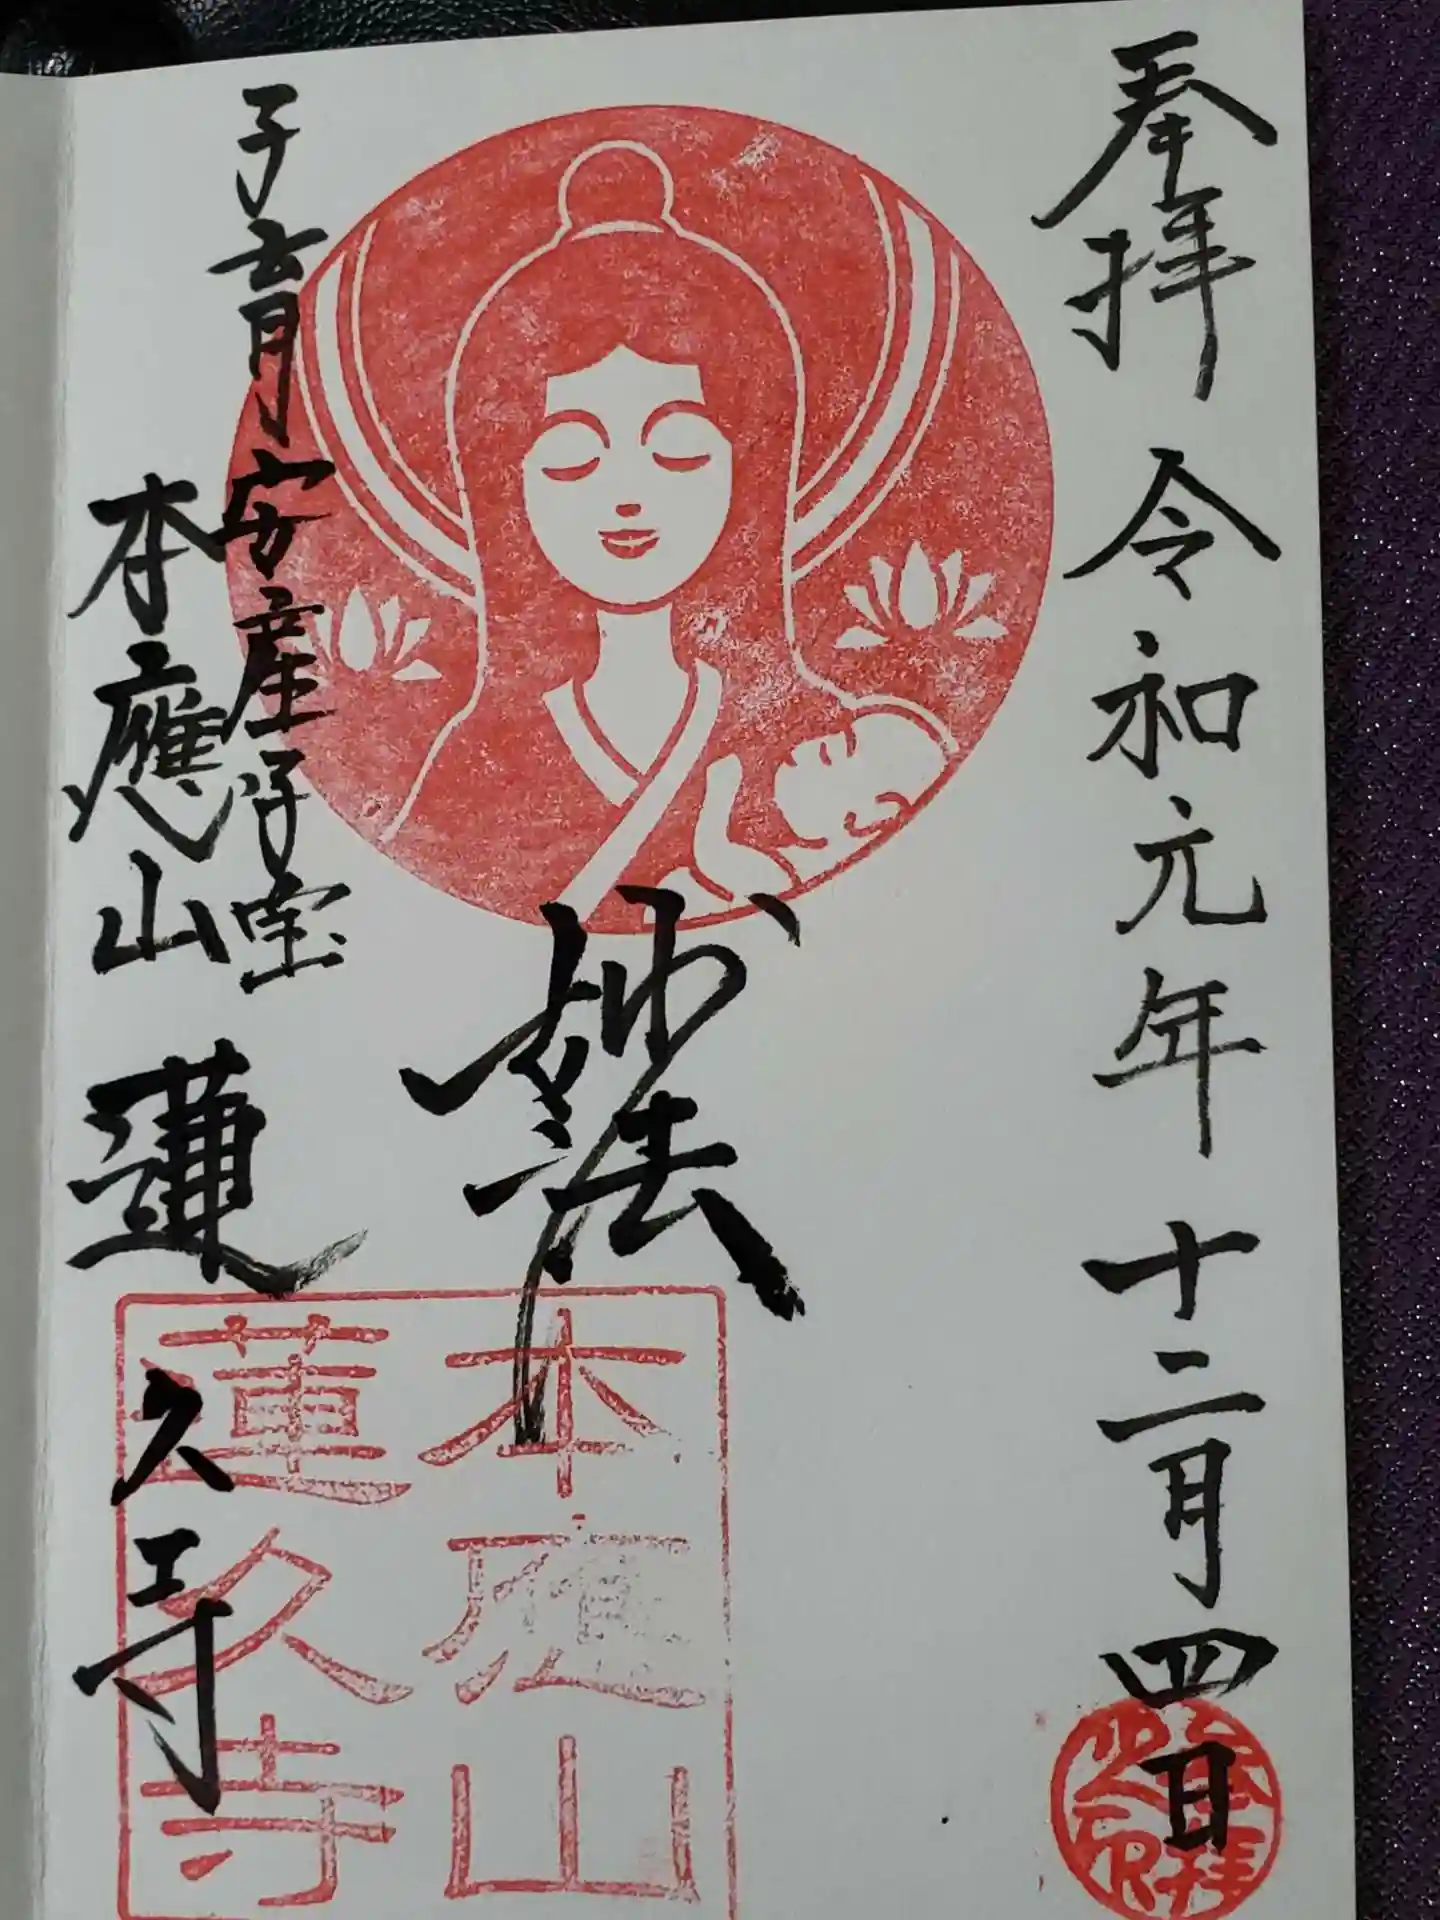 奉拝 令和元年 十二月四日
妙法
子育 安産 子宝
本應山 蓮久寺
本應山
蓮久寺
奉拝